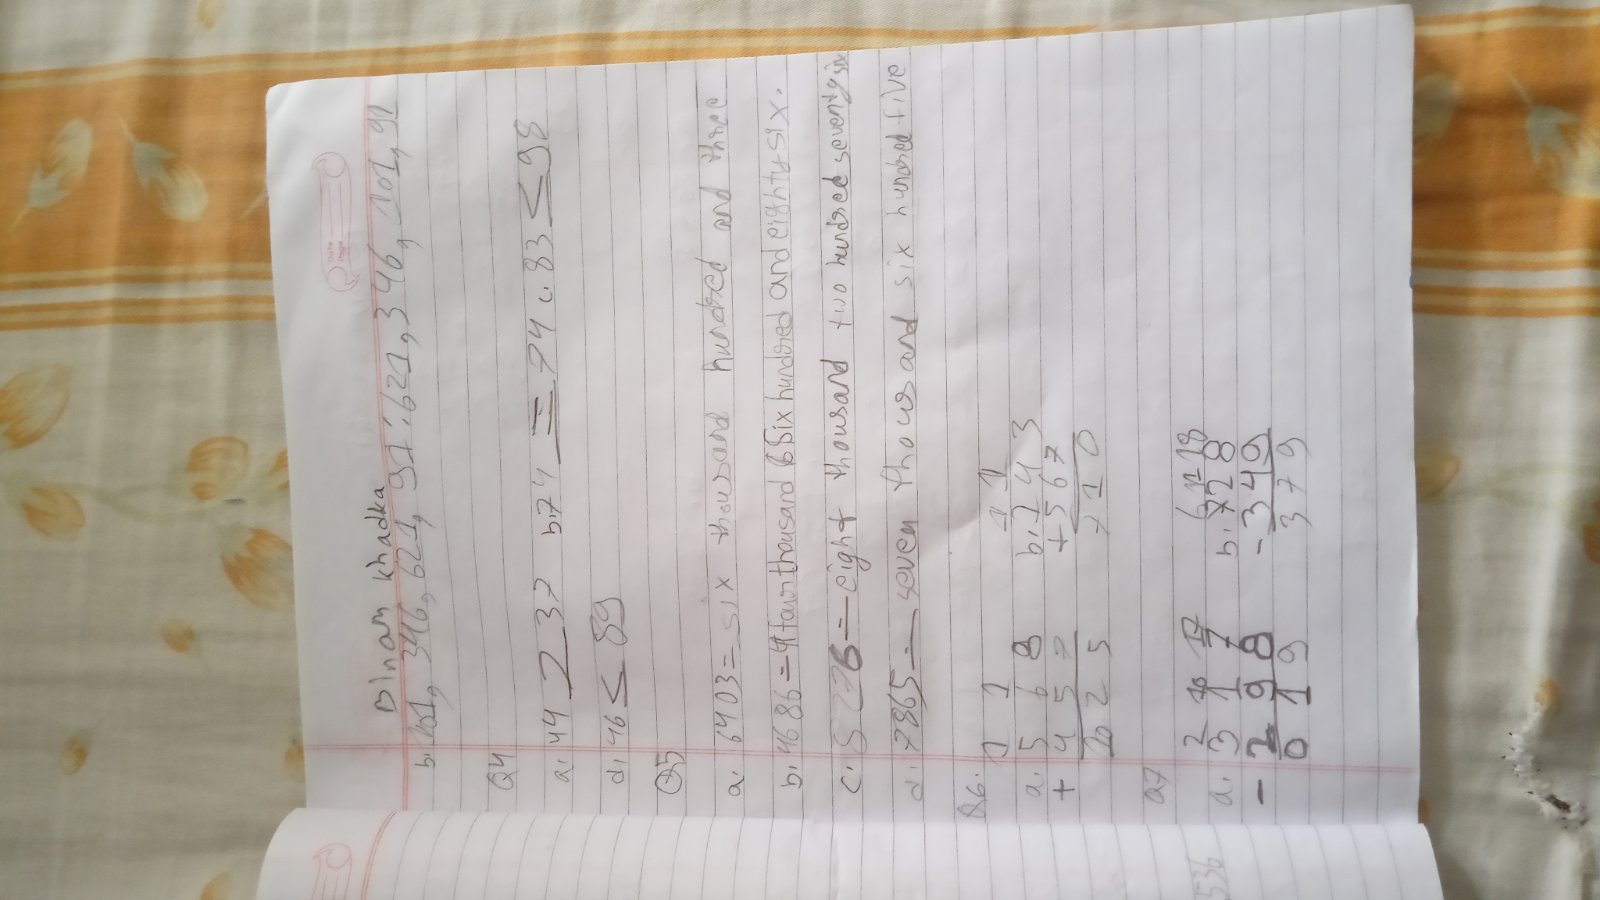 Binam Khadka
b. 101, 346, 621, 91 : 621, 346, 101, 91
Q4
a. 44 > 37 b. 74 = 74 c. 83 < 98
d. 46 < 89
Q5
a. 6403 = six thousand hundred and three
b. 4686 = four thousand six hundred and eighty six.
c. 8276 = eight thousand two hundred seventy six
d. 7865 = seven thousand six hundred five
Q6.
1 1 1 1
a. 5 6 8 b. 1 4 3
+ 4 5 7 + 5 6 7
10 2 5 7 1 0
Q7
2 10 17 6 11 18
a. 3 1 7 b. 7 2 8
- 2 9 8 - 3 4 9
0 1 9 3 7 9
536